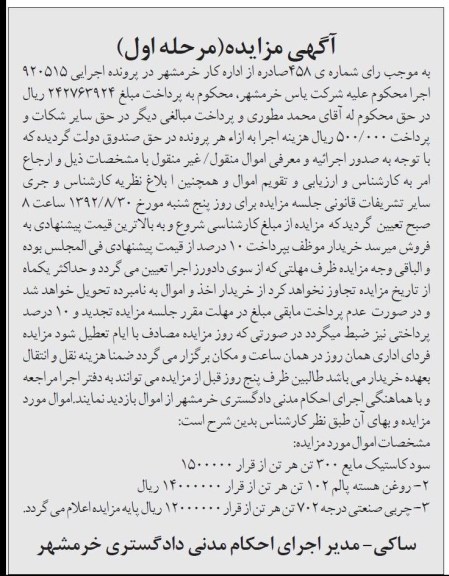 آگهی مزایده(مرحله اول)
به موجب رای شماره ی ۴۵۸صادره از اداره کار خرمشهر در پرونده اجرایی ۹۲۰۵۱۵
اجرا محکوم علیه شرکت یاس خرمشهر، محکوم به پرداخت مبلغ ۲۴۲۷۶۳۹۲۴ ریال
در حق محکوم له آقای محمد مطوری و پرداخت مبالغی دیگر در حق سایر شکات و
پرداخت ۵۰۰/۰۰۰ ریال هزینه اجرا به ازاء هر پرونده در حق صندوق دولت گردیده که
با توجه به صدور اجرائیه و معرفی اموال منقول/ غیر منقول با مشخصات ذیل و ارجاع
امر به کارشناس و ارزیابی و تقویم اموال و همچنین ا بلاغ نظریه کارشناس و جری
سایر تشریفات قانونی جلسه مزایده برای روز پنج شنبه مورخ ۱۳۹۲/۸/۳۰ ساعت ۸
صبح تعیین گردید که مزایده از مبلغ کارشناسی شروع و به بالاترین قیمت پیشنهادی به
فروش میرسد خریدار موظف بپرداخت ۱۰ درصد از قیمت پیشنهادی فی المجلس بوده
و الباقی وجه مزایده ظرف مهلتی که از سوی دادورز اجرا تعیین می گردد و حداکثر یکماه
از تاریخ مزایده تجاوز نخواهد کرد از خریدار اخذ و اموال به نامبرده تحویل خواهد شد
و در صورت عدم پرداخت مابقی مبلغ در مهلت مقرر جلسه مزایده تجدید و ۱۰ درصد
پرداختی نیز ضبط میگردد در صورتی که روز مزایده مصادف با ایام تعطیل شود مزایده
فردای اداری همان روز در همان ساعت و مکان برگزار می گردد ضمنا هزینه نقل و انتقال
بعهده خریدار می باشد طالبین ظرف پنج روز قبل از مزایده می توانند به دفتر اجرا مراجعه
و با هماهنگی اجرای احکام مدنی دادگستری خرمشهر از اموال بازدید نمایند.اموال مورد
مزایده و بهای آن طبق نظر کارشناس بدین شرح است:
مشخصات اموال مورد مزایده:
سود کاستیک مایع ۳۰۰ تن هر تن از قرار ۱۵۰۰۰۰۰
۲- روغن هسته پالم ۱۰۲ تن هر تن از قرار ۱۴۰۰۰۰۰۰ ریال
۳-چربی صنعتی درجه ۲ ۷۰ تن هر تن از قرار ۱۲۰۰۰۰۰۰ ریال پایه مزایده اعلام می گردد.
ساکی- مدیر اجرای احکام مدنی دادگستری خرمشهر